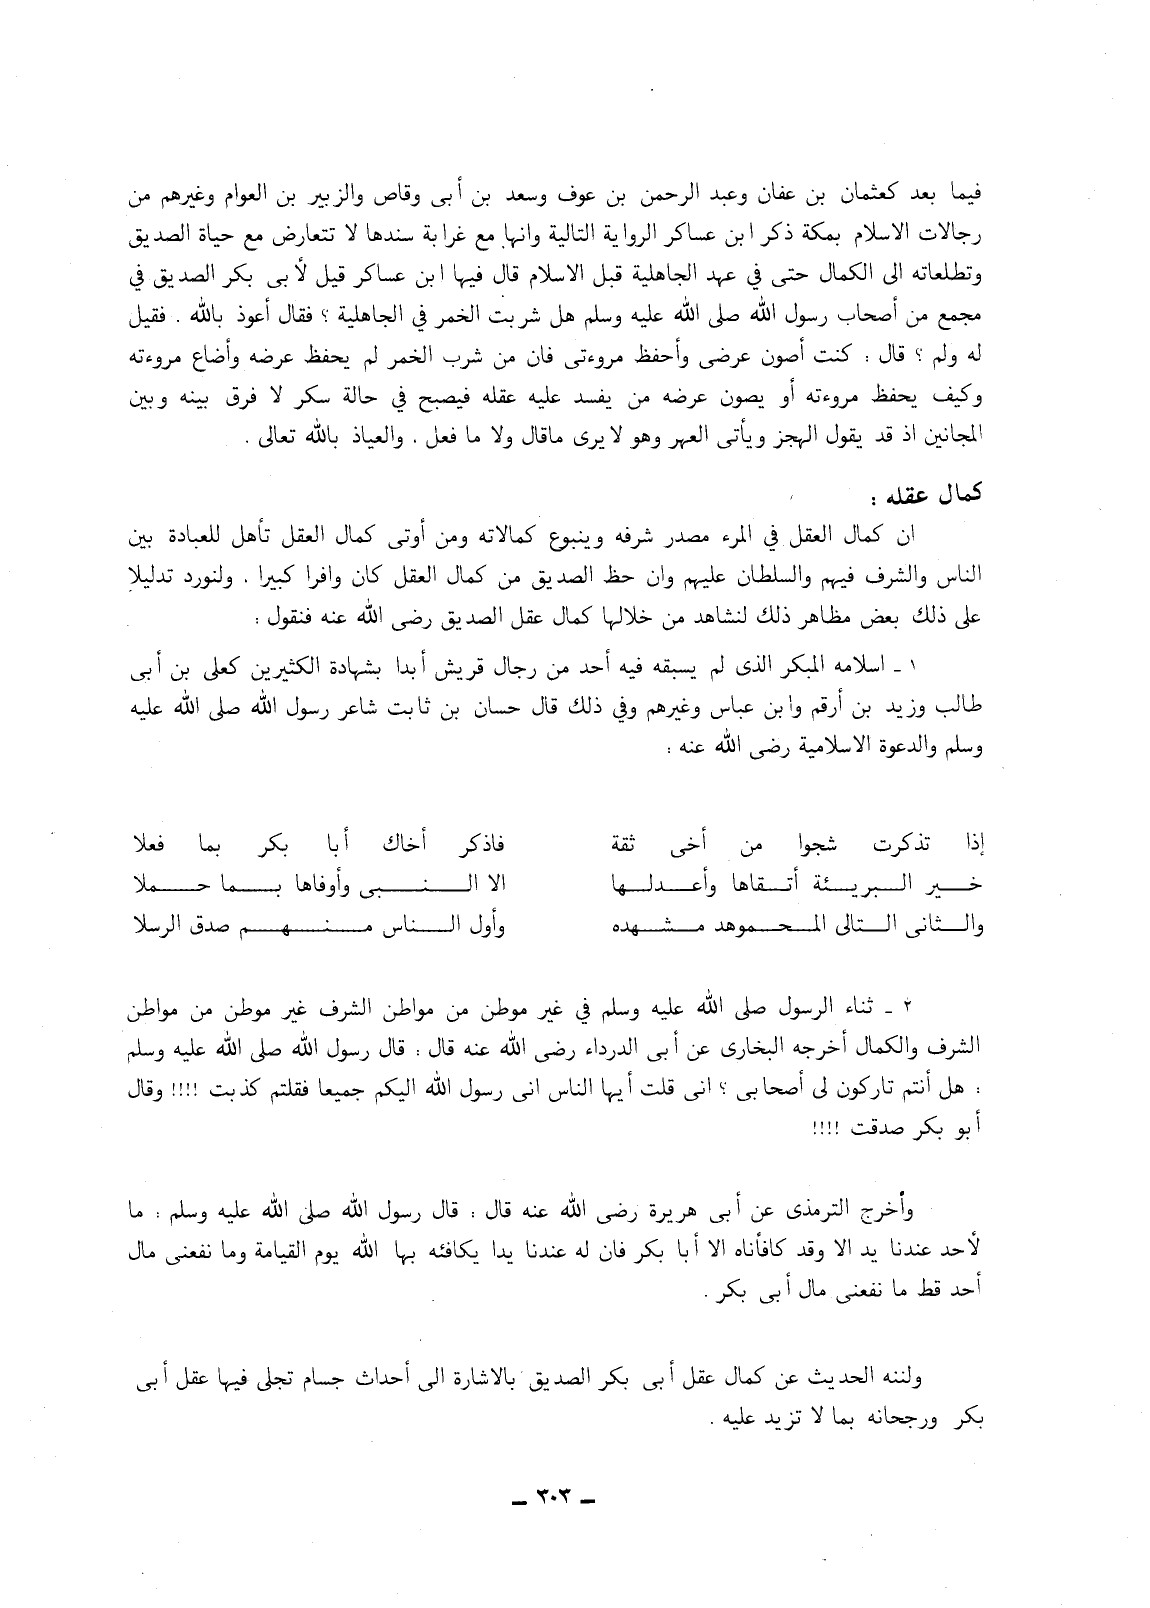 فيما بعد كعثمان بن عفان وعبد الرحمن بن عوف وسعد بن أبى وقاص والزبير بن العوام وغيرهم من
رجالات الاسلام بمكة ذكر ابن عساكر الرواية التالية وانها مع غرابة سندها لا تتعارض مع حياة الصديق
وتطلعاته الى الكمال حتى في عهد الجاهلية قبل الاسلام قال فيها ابن عساكر قيل لأبى بكر الصديق في
مجمع من أصحاب رسول الله صلى الله عليه وسلم هل شربت الخمر في الجاهلية ؟ فقال أعوذ بالله . فقيل
له ولم ؟ قال : كنت أصون عرضى وأحفظ مروءتى فان من شرب الخمر لم يحفظ عرضه وأضاع مروءته
وكيف يحفظ مروءته أو يصون عرضه من يفسد عليه عقله فيصبح في حالة سكر لا فرق بينه وبين
المجانين اذ قد يقول الهجز ويأتى العهر وهو لا يرى ماقال ولا ما فعل . والعياذ بالله تعالى .
كمال عقله :
ان كمال العقل في المرء مصدر شرفه وينبوع كمالاته ومن أوتى كمال العقل تأهل للعبادة بين
الناس والشرف فيهم والسلطان عليهم وان حظ الصديق من كمال العقل كان وافرا كبيرا . ولنورد تدليلا
على ذلك بعض مظاهر ذلك لنشاهد من خلالها كمال عقل الصديق رضى الله عنه فنقول :
١ ـ اسلامه المبكر الذى لم يسبقه فيه أحد من رجال قريش أبدا بشهادة الكثيرين كعلى بن أبى
طالب وزيد بن أرقم وابن عباس وغيرهم وفي ذلك قال حسان بن ثابت شاعر رسول الله صلى الله عليه
وسلم والدعوة الاسلامية رضى الله عنه :
إذا تذكرت شجوا من أخى ثقة فاذكر أخاك أبا بكر بما فعلا
خير البريئة أتقاها وأعدلها الا النبى وأوفاها بما حملا
والثانى التالى المحموهد مشهده وأول الناس منهم صدق الرسلا
٢ ـ ثناء الرسول صلى الله عليه وسلم في غير موطن من مواطن الشرف غير موطن من مواطن
الشرف والكمال أخرجه البخارى عن أبى الدرداء رضى الله عنه قال : قال رسول الله صلى الله عليه وسلم
: هل أنتم تاركون لى أصحابى ؟ انى قلت أيها الناس انى رسول الله اليكم جميعا فقلتم كذبت !!!! وقال
أبو بكر صدقت !!!!
وأخرج الترمذى عن أبى هريرة رضى الله عنه قال : قال رسول الله صلى الله عليه وسلم : ما
لأحد عندنا يد الا وقد كافأناه الا أبا بكر فان له عندنا يدا يكافئه بها الله يوم القيامة وما نفعنى مال
أحد قط ما نفعنى مال أبى بكر .
ولننه الحديث عن كمال عقل أبى بكر الصديق بالاشارة الى أحداث جسام تجلى فيها عقل أبى
بكر ورجحانه بما لا تزيد عليه .
ـ ٣٠٣ ـ